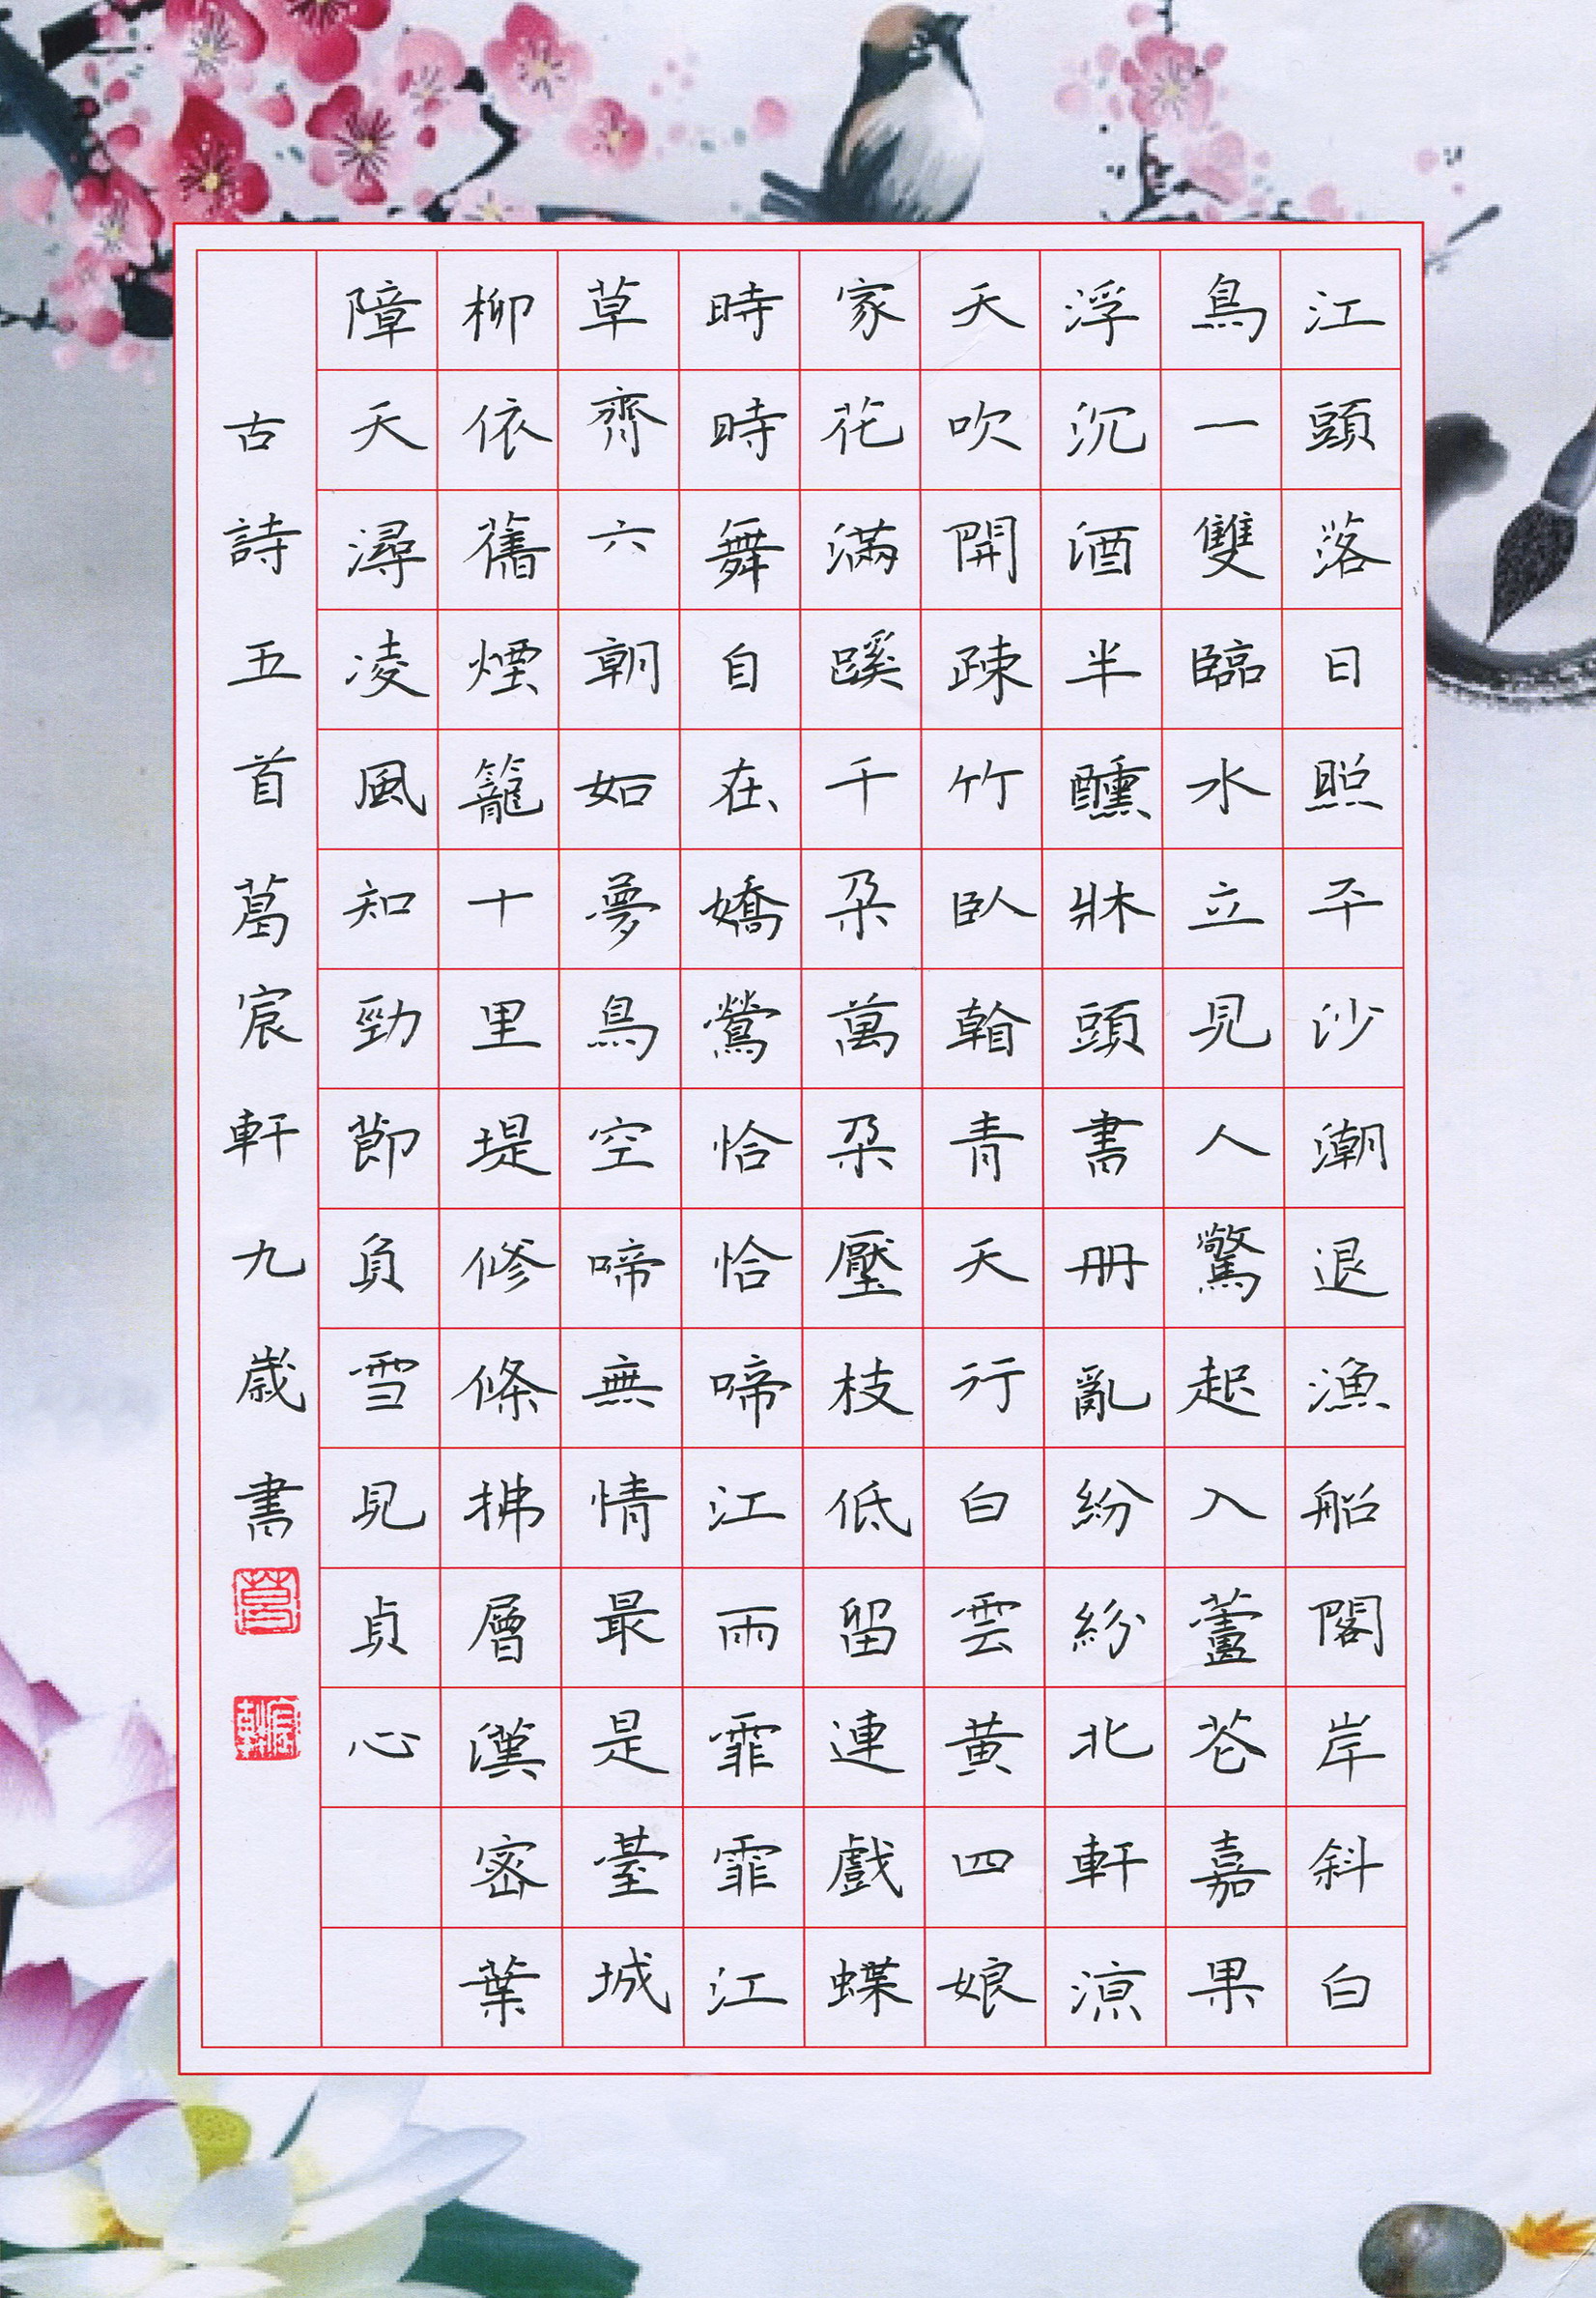 江頭落日照平沙潮退漁船閣岸斜白
鳥一雙臨水立見人驚起入蘆花嘉果
浮沉酒半醺牀頭書冊亂紛紛北軒涼
天吹開疎竹臥看青天行白雲黃四娘
家花滿蹊千朵萬朵壓枝低留連戲蝶
時時舞自在嬌鶯恰恰啼江雨霏霏江
草齊六朝如夢鳥空啼無情最是臺城
柳依舊煙籠十里堤修條拂層漢密葉
障天潯凌風知勁節負雪見貞心
古詩五首葛宸軒九歲書
葛
宸軒